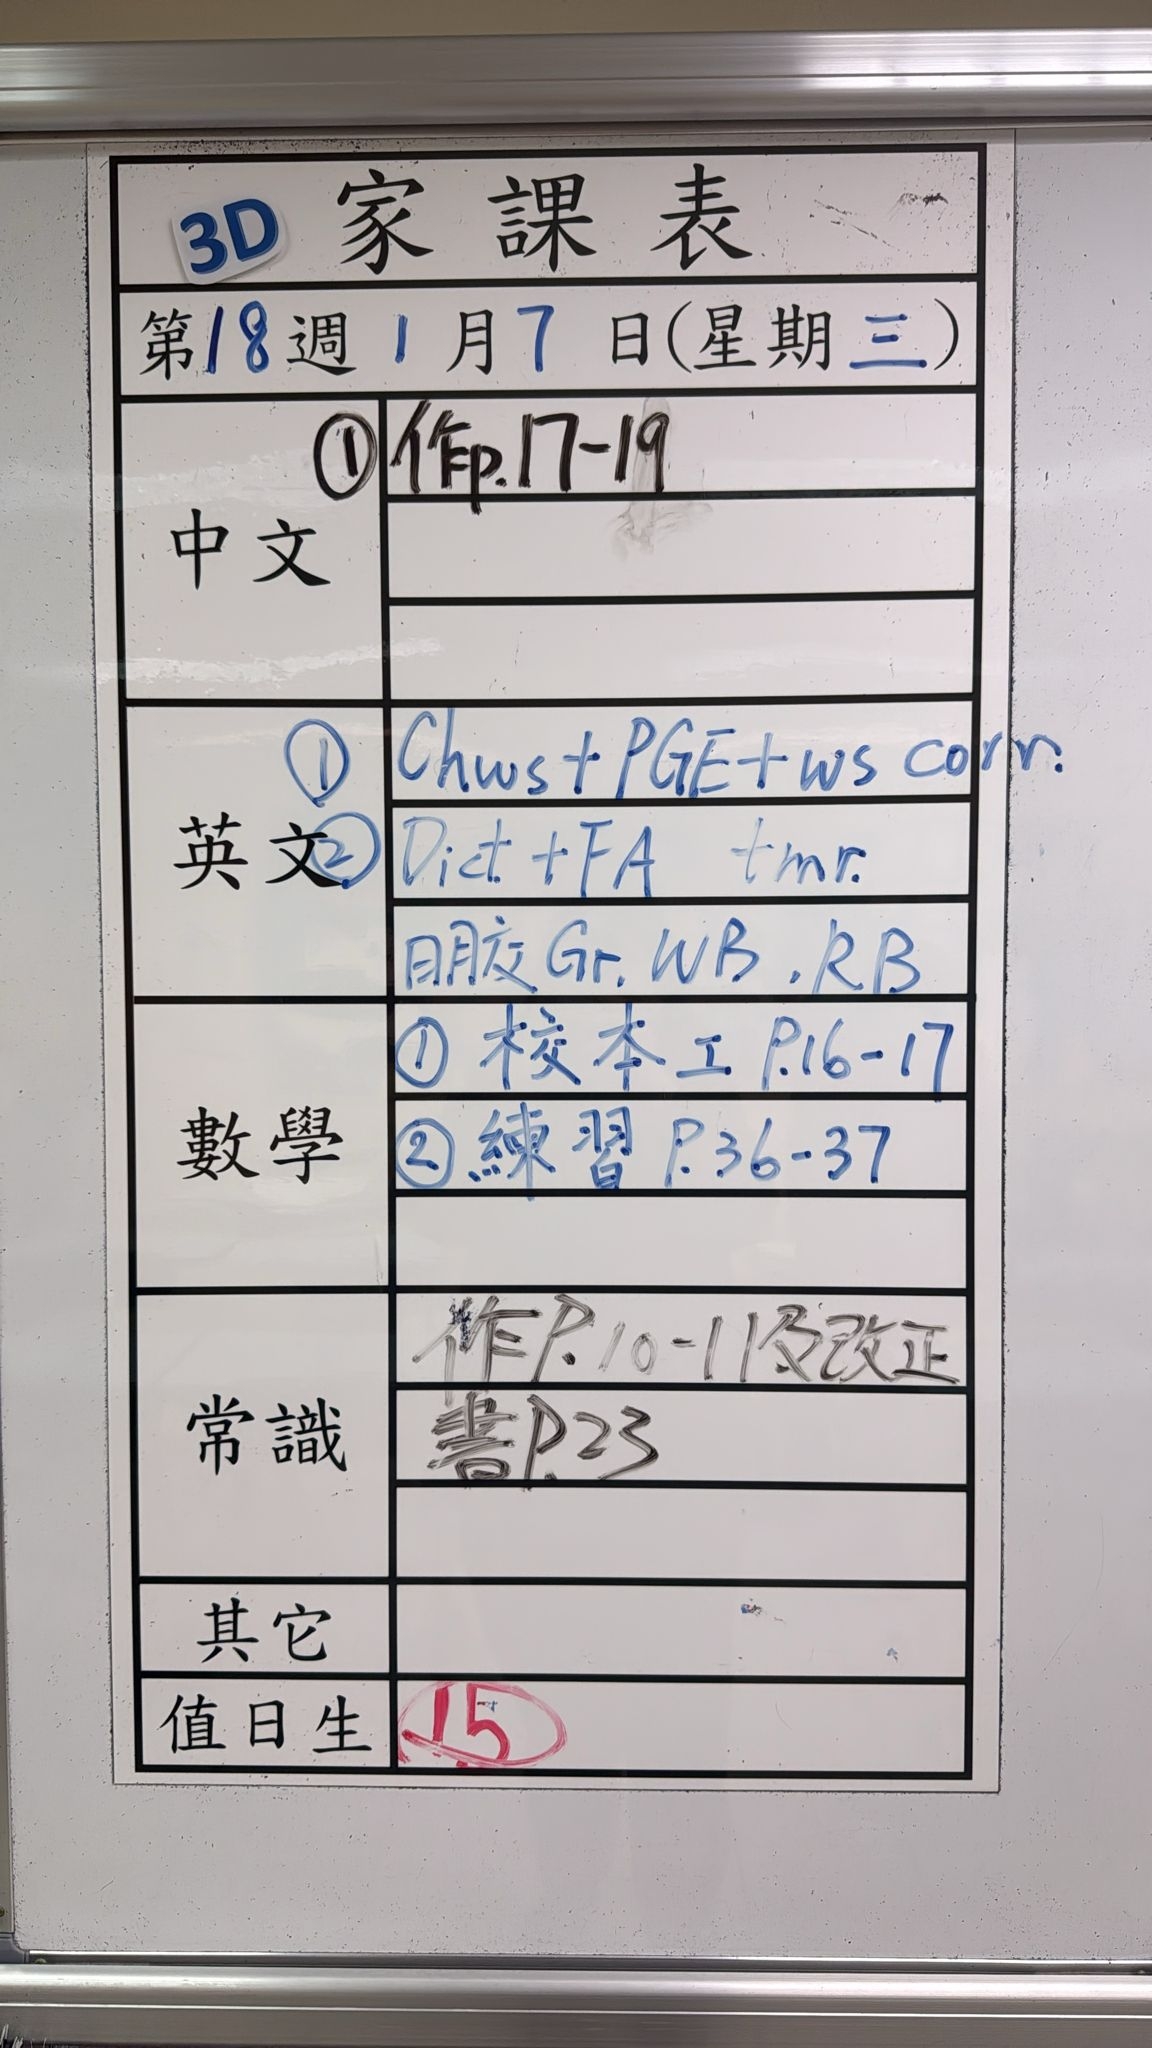 3D 家課表
第18週 1月7日(星期三)
中文
① 作p.17-19
英文
① Chws+PGE+ws corr.
② Dict. +FA tmr.
明交 Gr. WB, RB
數學
① 校本工 P.16-17
② 練習 P.36-37
常識
作P.10-11及改正
書P.23
其它
值日生
15